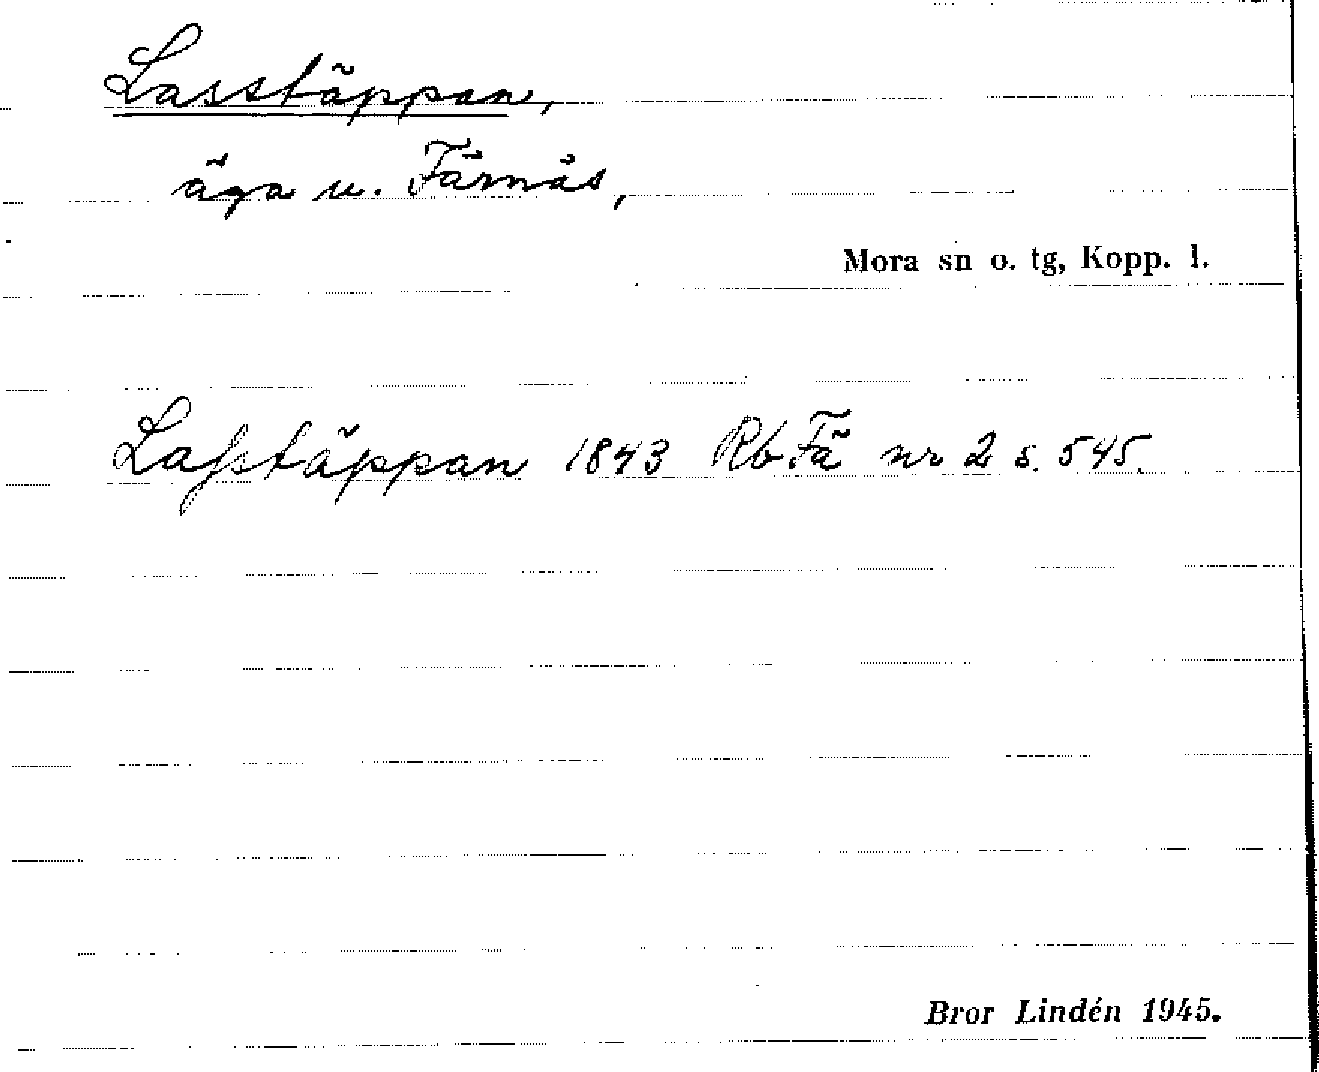 Lasstäppan,
äga u. Färnäs,
Mora sn o. tg, Kopp. l.
Laſstäppan 1843 Rb Fä nr 2 s. 545.
Bror Lindén 1945.